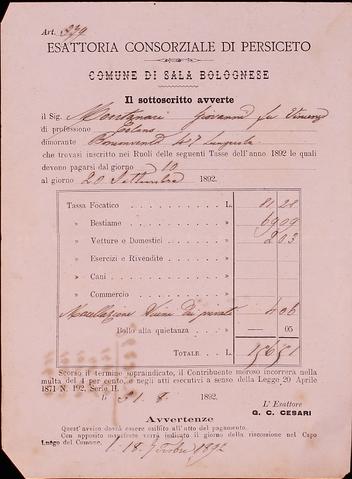 Art. 379
ESATTORIA CONSORZIALE DI PERSICETO
COMUNE DI SALA BOLOGNESE
Il sottoscritto avverte
il Sig. Montanari Giovanni fu Vincenzo
di professione Colono
dimorante Bonconvento 47
che trovasi inscritto nei Ruoli delle seguenti Tasse dell'anno 1892 le quali
devono pagarsi dal giorno 10
al giorno 20 Settembre 1892.
Tassa Focatico L.
» Bestiame » 69 09
» Vetture e Domestici » 2 03
» Esercizi e Rivendite »
» Cani »
» Commercio »
Macellazione Suini » 4 06
Bollo alla quietanza » — 05
TOTALE L.
Scorso il termine sopraindicato, il Contribuente moroso incorrerà nella
multa del 4 per cento, e negli atti esecutivi a senso della Legge 20 Aprile
1871 N. 192, Serie II.
li 31. 8. 1892.
L'Esattore
G. C. CESARI
Avvertenze
Quest'avviso dovrà essere esibito all'atto del pagamento.
Con apposito manifesto verrà indicato il giorno della riscossione nel Capo
Luogo del Comune. 1892